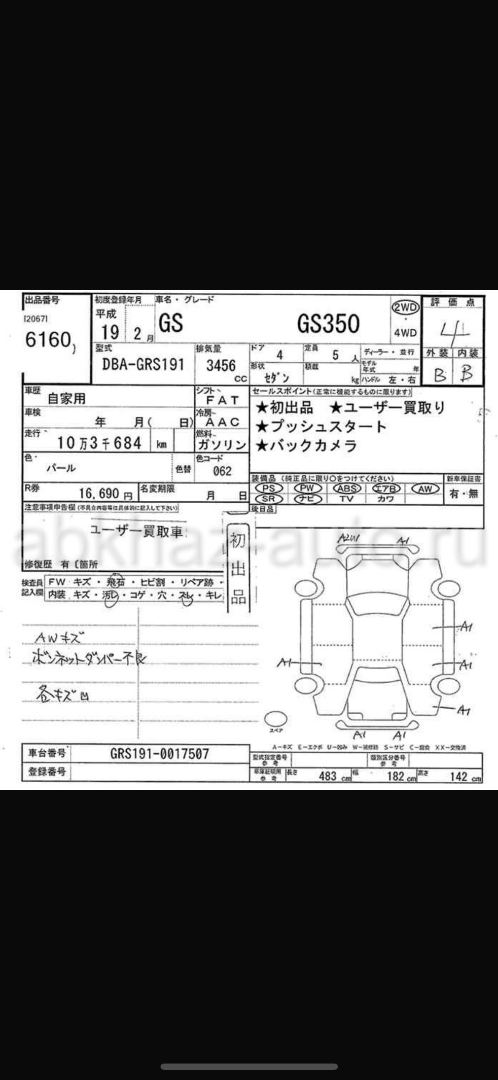 出品番号 初度登録年月 車名・グレード 評価点
[2067] 平成 2WD
6160) 19年 2月 GS GS350 4WD 4
型式 排気量 ドア 4 定員 5人 ディーラー・並行 外装 内装
DBA-GRS191 3456cc 形状 セダン 積載 kg モデル年式 年 ハンドル 左・右 B B
車歴 自家用 シフト FAT セールスポイント(正常に機能するものに限ります)
車検 年 月( 日) 冷房 AAC ★初出品 ★ユーザー買取り
走行 10万3千684 km 燃料 ガソリン ★プッシュスタート
色 パール 色替 色コード 062 ★バックカメラ
R券 16,690円 名変期限 月 日 装備品(純正品に限り○をつけてください) 新車保証書
PS PW ABS エアB AW 有・無
SR ナビ TV カワ
注意事項申告欄(不具合内容等は具体的に記入して下さい) 後日品
ユーザー買取車 初出品
修復歴 有(箇所
検査員記入欄 FW キズ・飛石・ヒビ割・リペア跡・
内装 キズ・汚レ・コゲ・穴・スレ・キレ
AWキズ
ボンネットダンパー不良
各キズ凹
A1 A1 A1 A1 A1 A1 A1
スペア
A－キズ E－エクボ U－凹み W－補修跡 S－サビ C－腐食 XX－交換済
車台番号 GRS191-0017507 型式指定番号 参考 類別区分番号 参考
登録番号 車庫証明用 参考 長さ 483cm 幅 182cm 高さ 142cm
abkhaz-auto.ru